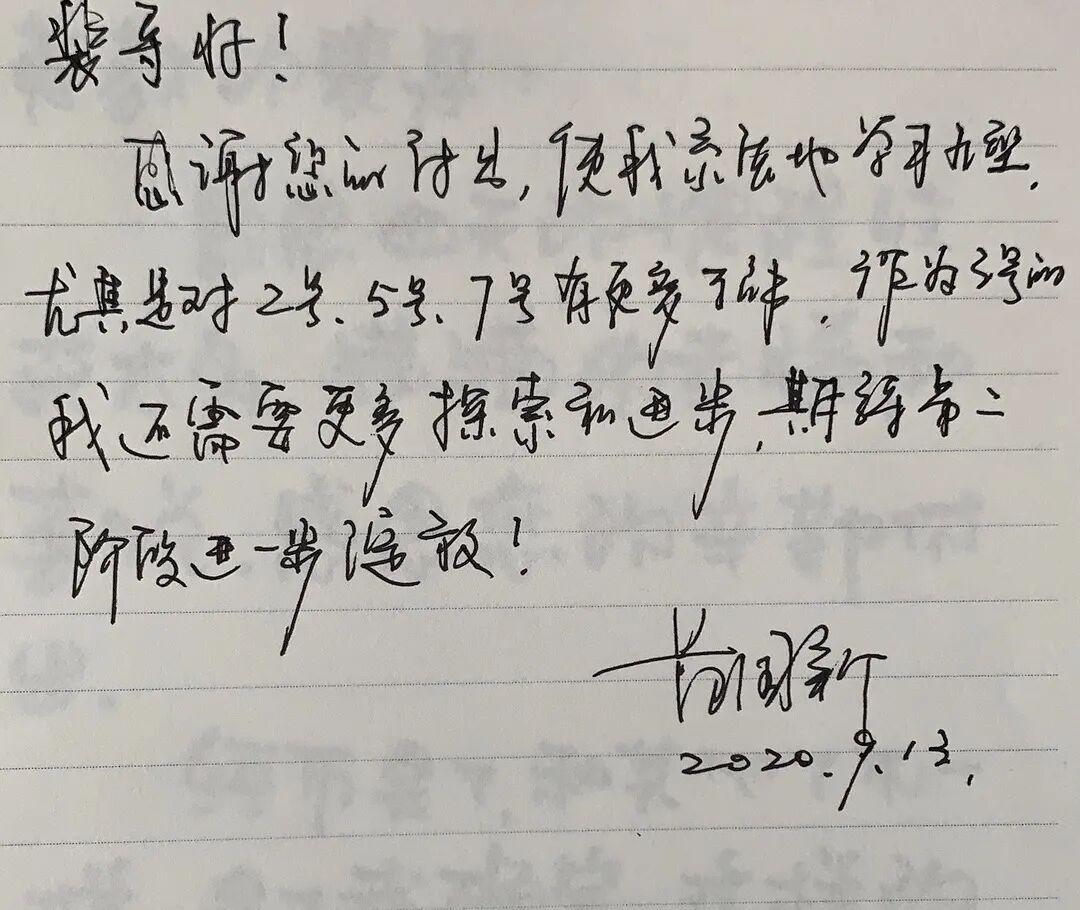 裴哥好！
感谢您的付出，使我系统地学习九型，
尤其是对2号、5号、7号有更多了解，作为3号的
我还需要更多探索和进步，期待第二
阶段进一步绽放！
2020.9.13.